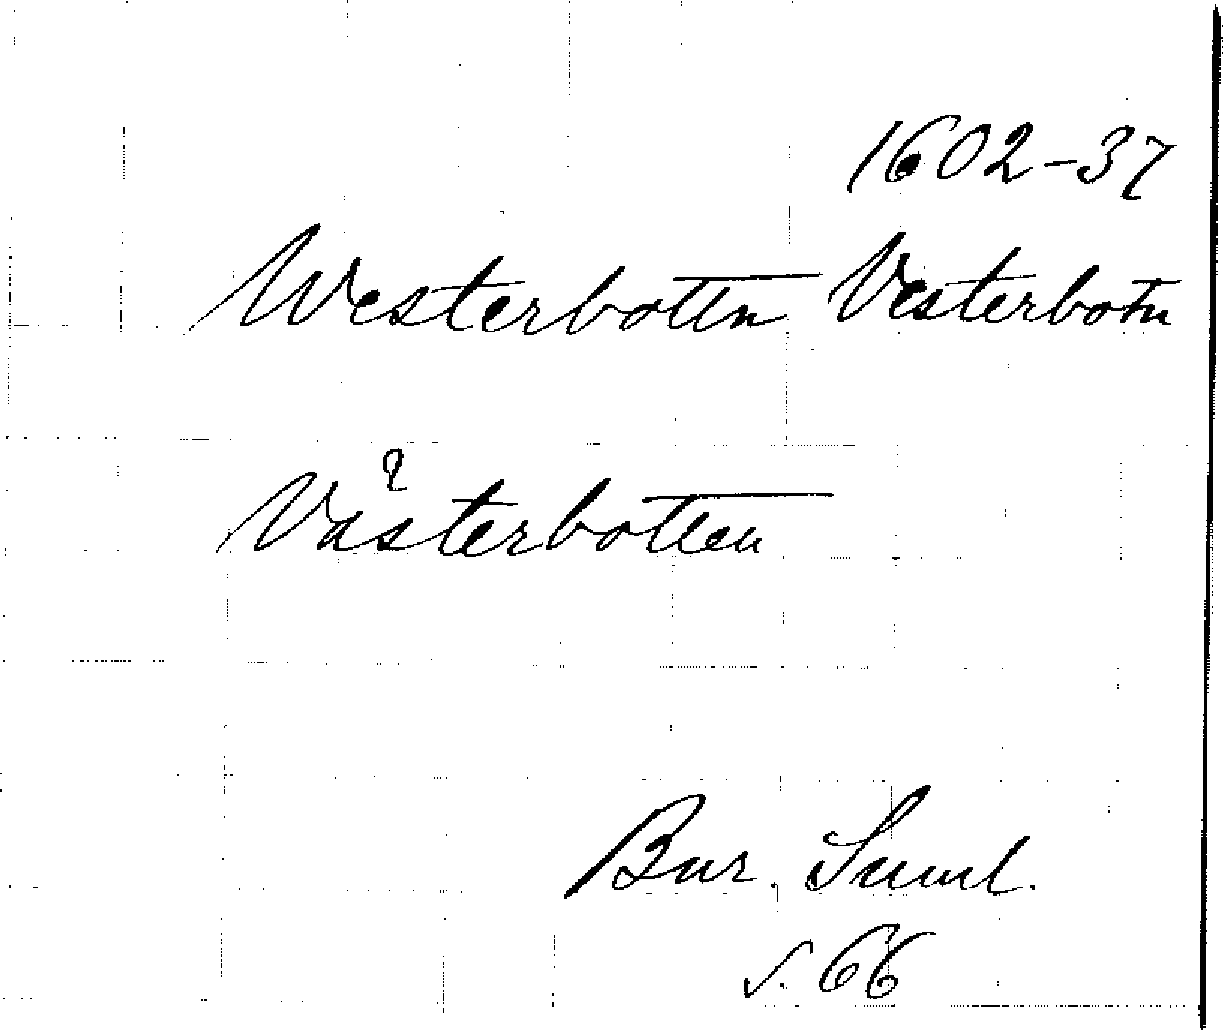 1602-37
Westerbotten Vesterbotn
Västerbotten
Bur. Suml.
s. 66